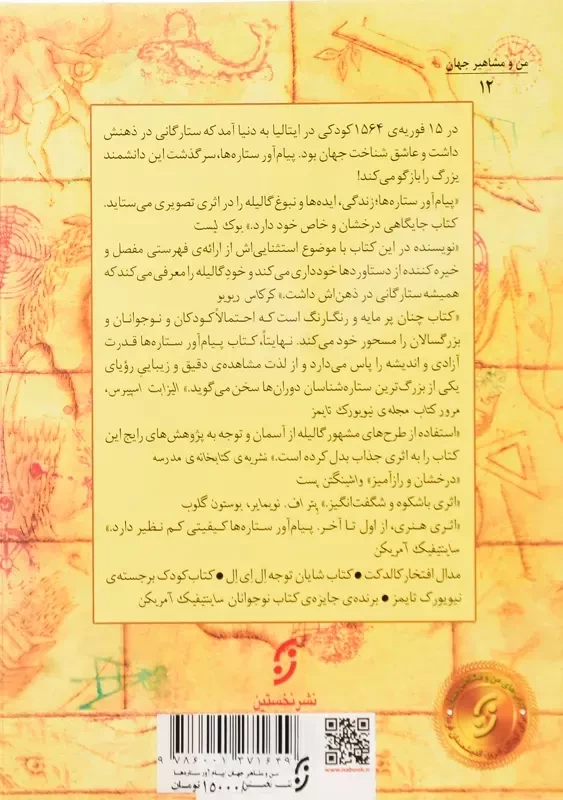 من و مشاهیر جهان
۱۲
در ۱۵ فوریه‌ی ۱۵۶۴ کودکی در ایتالیا به دنیا آمد که ستارگانی در ذهنش
داشت و عاشق شناخت جهان بود. پیام‌آور ستاره‌ها، سرگذشت این دانشمند
بزرگ را بازگو می‌کند!
«پیام‌آور ستاره‌ها؛ زندگی، ایده‌ها و نبوغ گالیله را در اثری تصویری می‌ستاید.
کتاب جایگاهی درخشان و خاص خود دارد.» بوک لیست
«نویسنده در این کتاب با موضوع استثنایی‌اش از ارائه‌ی فهرستی مفصل و
خیره کننده از دستاوردها خودداری می‌کند و خودِ گالیله را معرفی می‌کند که
همیشه ستارگانی در ذهن‌اش داشت.» کرکاس ریویو
«کتاب چنان پر مایه و رنگارنگ است که احتمالاً کودکان و نوجوانان و
بزرگسالان را مسحور خود می‌کند. نهایتاً، کتاب پیام‌آور ستاره‌ها قدرت
آزادی و اندیشه را پاس می‌دارد و از لذت مشاهده‌ی دقیق و زیباییِ رؤیای
یکی از بزرگ‌ترین ستاره‌شناسان دوران‌ها سخن می‌گوید.» الیزابت اسپیرس،
مرور کتاب مجله‌ی نیویورک تایمز
«استفاده از طرح‌های مشهور گالیله از آسمان و توجه به پژوهش‌های رایج این
کتاب را به اثری جذاب بدل کرده است.» نشریه‌ی کتابخانه‌ی مدرسه
«درخشان و رازآمیز» واشینگتن پست
«اثری باشکوه و شگفت‌انگیز.» پیتر اف. نویمایر، بوستون گلوب
«اثری هنری، از اول تا آخر. پیام‌آور ستاره‌ها کیفیتی کم نظیر دارد.»
ساینتیفیک آمریکن
مدال افتخار کالدکت ● کتاب شایان توجه ای‌ال‌ای ● کتاب کودک برجسته‌ی
نیویورک تایمز ● برنده‌ی جایزه‌ی کتاب نوجوانان ساینتیفیک آمریکن
نشر نخستین
9 786001 371639
من و مشاهیر جهان پیام آور ستاره‌ها
۱۵۰۰۰ تومان